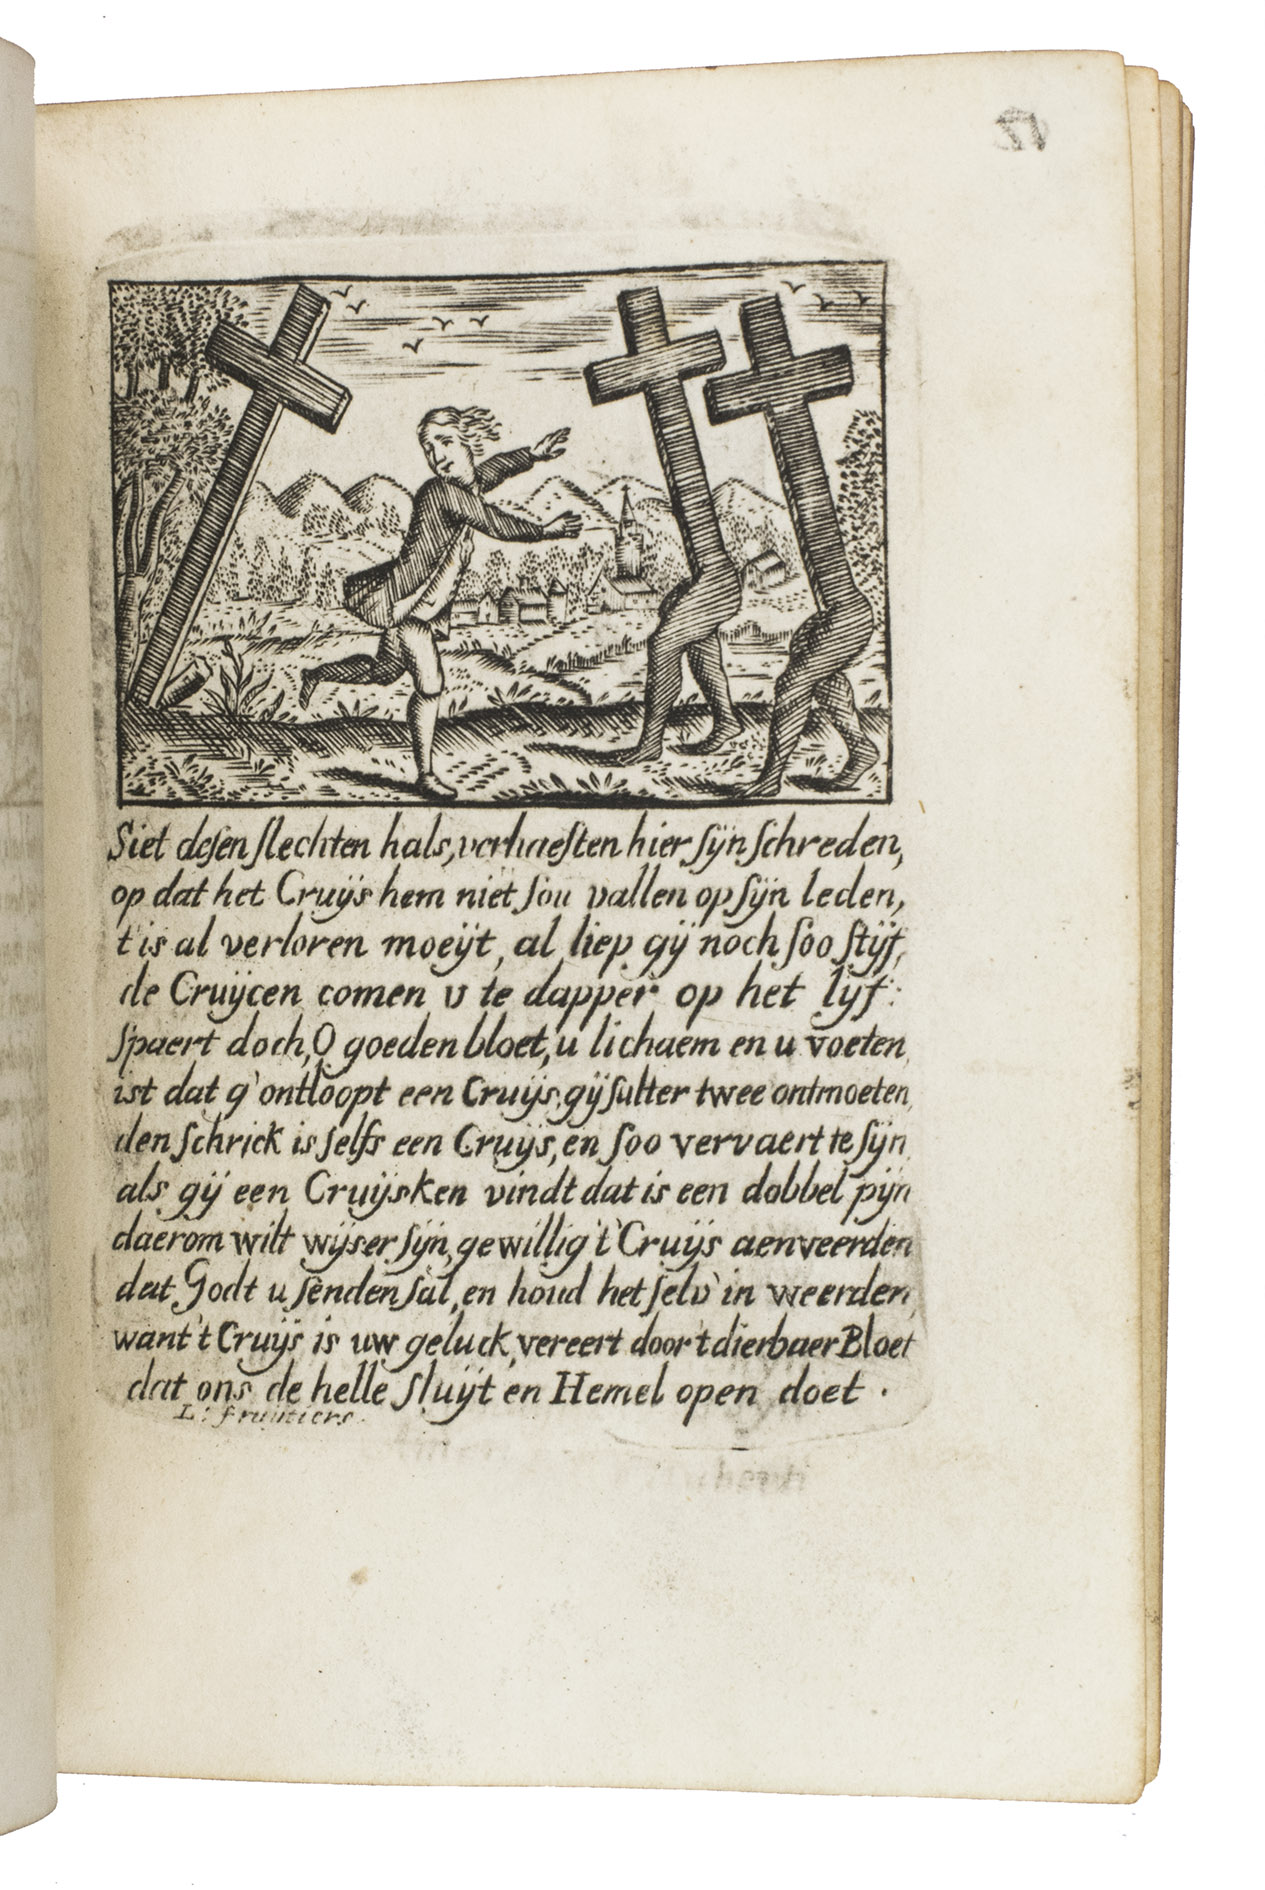 17
Siet desen slechten hals, verhaesten hier sijn schreden,
op dat het Cruijs hem niet sou vallen op sijn leden,
t'is al verloren moeijt, al liep gij noch soo stijf,
de Cruijcen comen u te dapper op het lijf:
spaert doch, O goeden bloet, u lichaem en u voeten,
ist dat g'ontloopt een Cruijs, gij sulter twee ontmoeten,
den schrick is selfs een Cruijs, en soo vervaert te sijn
als gij een Cruijsken vindt dat is een dobbel pijn
daerom wilt wijser sijn, gewillig 't Cruijs aenveerden
dat Godt u senden sal, en houd het selv' in weerden,
want 't Cruijs is uw geluck, vereert door t dierbaer Bloet
dat ons de helle sluijt en Hemel open doet.
L: fruijtiers.